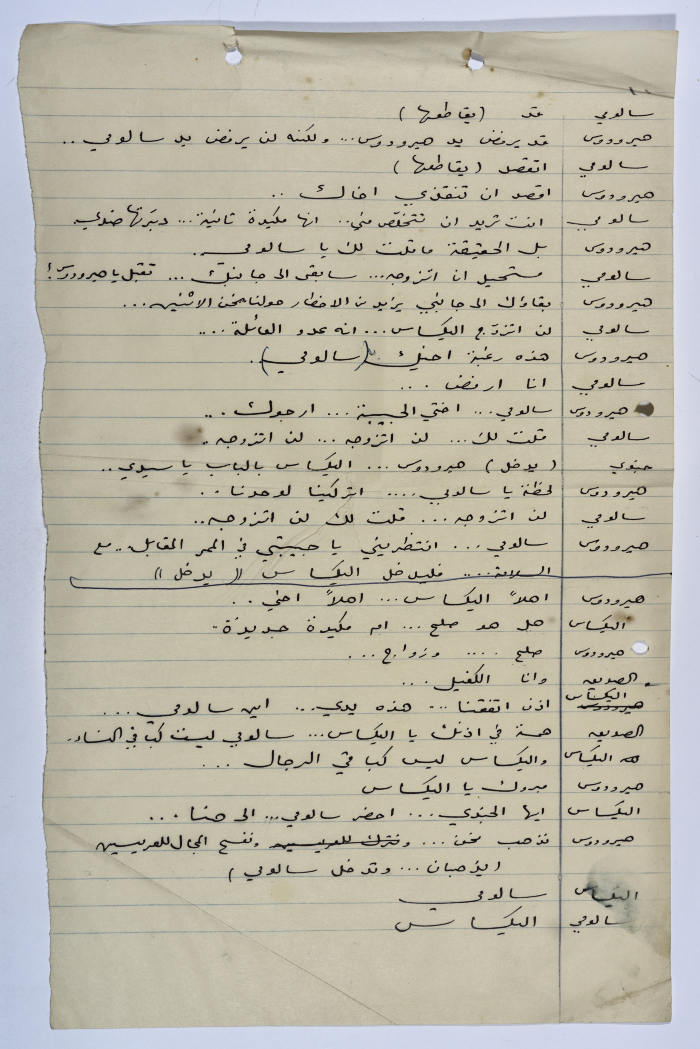 ١٠
سالومي قد (يقاطعها)
هيرودوس قد يرفض يد هيرودوس... ولكنه لن يرفض يد سالومي..
سالومي اتقصد (يقاطعها)
هيرودوس اقصد ان تنقذي اخاك ..
سالومي انت تريد ان تتخلص مني.. انها مكيدة ثانية... دبرتها ضدي
هيرودوس بل الحقيقة ما قلت لك يا سالومي.
سالومي مستحيل ان اتزوجه... سابقى الى جانبك... تقبل يا هيرودوس!
هيرودوس بقاؤك الى جانبي يزيد من الاخطار حولنا نحن الاثنين...
سالومي لن اتزوج اليكساس... انه عدو العائلة....
هيرودوس هذه رغبة اخيك (سالومي).
سالومي انا ارفض ...
هيرودوس سالومي... اختي الحبيبة... ارجوك...
سالومي قلت لك... لن اتزوجه... لن اتزوجه..
جندي (يدخل) هيرودوس... اليكساس بالباب يا سيدي..
هيرودوس لحظة يا سالومي.... اتركينا لوحدنا..
سالومي لن اتزوجه... قلت لك لن اتزوجه..
هيرودوس سالومي... انتظريني يا حبيبتي في الممر المقابل... مع
السلامة.... فليدخل اليكساس ((يدخل))
هيرودوس اهلاً اليكساس... اهلاً اخي..
اليكساس هل هو صلح... ام مكيدة جديدة..
هيرودوس صلح .... وزواج...
وانا الكفيل...
اليكساس هيرودوس اذن اتفقنا... هذه يدي... اين سالومي...
همسة في اذنك يا اليكساس... سالومي ليست كباقي النساء.
اليكساس واليكساس ليس كباقي الرجال ...
هيرودوس مبروك يا اليكساس
اليكساس ايها الجندي... احضر سالومي... الى هنا...
هيرودوس نذهب نحن... ونترك للعريسين ونفسح المجال للعريسين
(يذهبان... وتدخل سالومي)
اليكساس سالومي
سالومي اليكساس